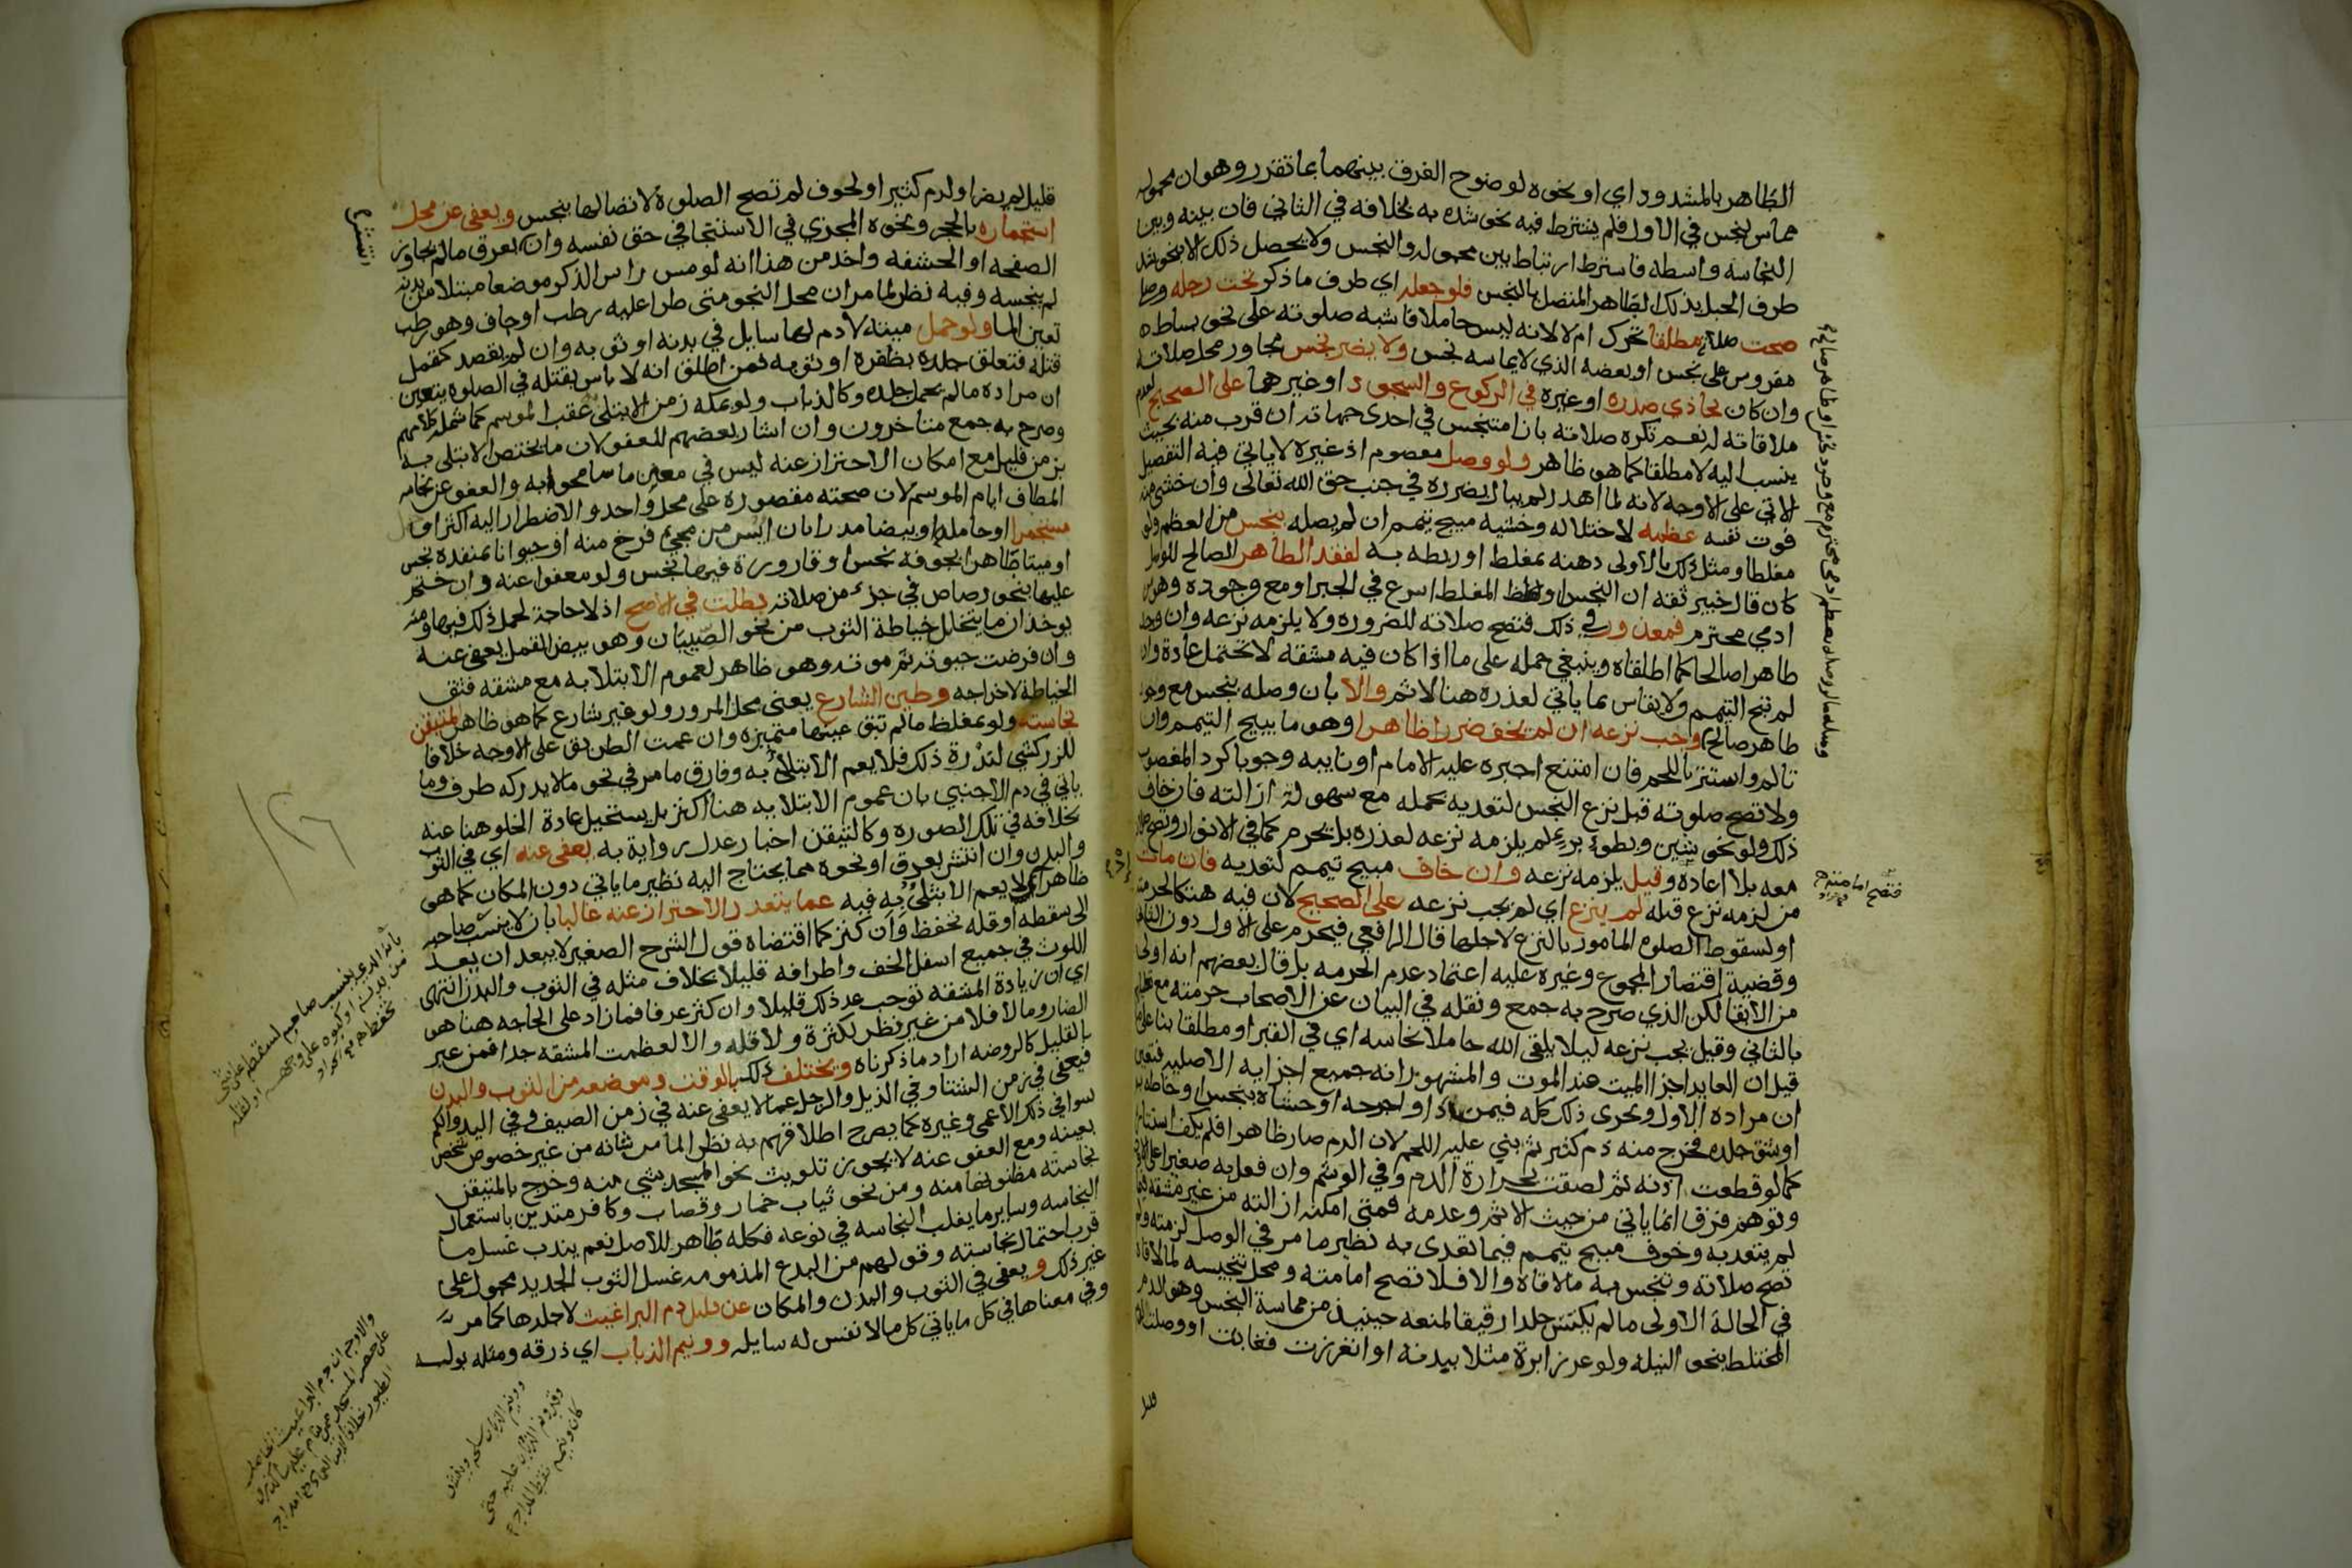 الظاهر بالمشدود اي او نحوه لوضوح الفرق بينهما بما تقرر وهو ان محموله
مماس لنجس في الاول فلم يشترط فيه نحو شده به بخلافه في الثاني فان بينه وبين
النجاسه واسطه فاشترط ارتباط بين محموله والنجس ولا يحصل ذلك الا بنحو شد
طرف الحبل بذلك الطاهر المتصل بالنجس فلو جعله اي طرف ما ذكر تحت رجله وصلى
صحت صلاته مطلقا تحرك ام لا لانه ليس حاملا فاشبه صلوته على نحو بساط
مفروس على نجس او بعضه الذي لا يماسه نجس ولا يضر نجس مجاور محل صلاته
وان كان يحاذي صدره او غيره في الركوع والسجود او غيرهما على الصحيح لعدم
ملاقاته له نعم تكره صلاته بازا متنجس في احدى جهاته ان قرب منه بحيث
ينسب اليه لا مطلقا كما هو ظاهر ولو وصل معصوم اذ غيره لا ياتي فيه التفصيل
الاتي على الاوجه لانه لما اهدر لم يبال بضرره في جنب حق الله تعالى وان خشي منه
فوت نفسه عظمه لاختلاله وخشيه مبيح تيمم ان لم يصله بنجس من العظم ولو
مغلظا ومثل ذلك بالاولى دهنه بمغلظ او ربطه به لفقد الطاهر الصالح للوصل
كان قال خبير ثقه ان النجس او المغلظ اسرع في الجبر او مع وجوده وهو من
ادمي محترم فمعذور في ذلك فتصح صلاته للضروره ولا يلزمه نزعه وان وجد
طاهرا صالحا كما اطلقاه وينبغي حمله على ما اذا كان فيه مشقه لا تحتمل عادة وان
لم تبح التيمم ولا يقاس بما ياتي لعذره هنا لا ثم والا بان وصله بنجس مع وجود
طاهر صالح وجب نزعه ان لم يخف ضررا ظاهرا وهو ما يبيح التيمم وان
تالم واستتر باللحم فان امتنع اجبره عليه الامام او نايبه وجوبا كرد المغصوب
ولا تصح صلوته قبل نزع النجس لتعديه بحمله مع سهولة ازالته فان خاف
ذلك ولو نحو شين وبطوء برء لم يلزمه نزعه لعذره بل يحرم كما في الانوار وتصح صلاته
معه بلا اعاده وقيل يلزمه نزعه وان خاف مبيح تيمم لتعديه فان مات
من لزمه نزع قبله لم ينزع اي لم يجب نزعه على الصحيح لان فيه هتكا لحرمته
او لسقوط الصلوه المامور بالنزع لاجلها قال الرافعي فيحرم على الاول دون الثاني
وقضية اقتصار المجموع وغيره عليه اعتماد عدم الحرمه بل قال بعضهم انه اولى
من الابقا لكن الذي صرح به جمع ونقله في البيان عن الاصحاب حرمته مع
بالثاني وقيل يجب نزعه ليلا يلقى الله حاملا نجاسه اي في القبر او مطلقا بنا على ما
قيل ان العايد اجزا الميت عند الموت والمشهور انه جميع اجزايه الاصليه فتعين
ان مراده الاول ويجرى ذلك كله فيمن داوا جرحه او حشاه بنجس او خاطه به
او شق جلده فخرج منه دم كثير ثم بني عليه اللحم لان الدم صار ظاهرا فلم يكف استتاره
كما لو قطعت اذنه ثم لصقت بحرارة الدم وفي الوشم وان فعل به صغيرا على الاوجه
وتوهم فرق انما ياتي من حيث الاثم وعدمه فمتى امكنه ازالته من غير مشقه فيما
لم يتعد به وخوف مبيح تيمم فيما تعدى به نظير ما مر في الوصل لزمته ولم
تصح صلاته وتنجس به ما لاقاه والا فلا فتصح امامته ومحل تنجيسه لما لاقاه
في الحالة الاولى ما لم يكتس جلدا رقيقا لمنعه حينيذ من مماسة النجس وهو الدم
المختلط بنحو النيله ولو غرز ابرة مثلا ببدنه او انغرزت فغابت او وصلت
قليل
فتصح امامته
قليل لم يضر او لدم كثير او لجوف لم تصح الصلوة لاتصالها بنجس ويعفى عن محل
استجماره بالحجر ونحوه المجزي في الاستنجا في حق نفسه وان عرق ما لم يجاوز
الصفحه او الحشفه واخذ من هذا انه لو مس راس الذكر موضعا مبتلا من بدنه
لم ينجسه وفيه نظر لما مر ان محل النجو متى طرا عليه رطب او جاف وهو رطب
تعين الما ولو حمل ميته لا دم لها سايل في بدنه او ثوبه وان لم يقصد كقمل
قتله فتعلق جلده بظفره او ثوبه فمن اطلق انه لا باس بقتله في الصلوه يتعين
ان مراده ما لم يحمل جلده وكالذباب ولو بمكه زمن الابتلى عقب الموسم كما شمله كلامهم
وصرح به جمع متاخرون وان اشار بعضهم للعفو لان ما يختص الابتلى به
بزمن قليل مع امكان الاحتراز عنه ليس في معنى ما سامحوا به والعفو عن نجاسه
المطاف ايام الموسم لان صحته مقصوره على محل واحد والاضطرار اليه اكثر او
مستجمرا او حامله او بيضا مذرا بان ايس من مجئ فرخ منه او حيوانا بمنفذه نجس
او ميتا طاهرا بجوفه نجس او قارورة فيها نجس ولو معفوا عنه وان ختم
عليها بنحو رصاص في جزء من صلاته بطلت في الاصح اذ لا حاجة لحمل ذلك فيها ومنه
يوخذ ان ما يتخلل خياطة الثوب من نحو الصّيبان وهو بيض القمل يعفى عنه
وان فرضت حيوته ثم موته وهو ظاهر لعموم الابتلا به مع مشقه فتق
الخياطة لاخراجه وطين الشارع يعني محل المرور ولو غير شارع كما هو ظاهر المتيقن
نجاسته ولو بمغلظ ما لم تبق عينها متميزه وان عمت الطريق على الاوجه خلافا
للزركشي لندرة ذلك فلا يعم الابتلاء به وفارق ما مر في نحو ما لا يدركه طرف وما
ياتي في دم الاجنبي بان عموم الابتلا به هنا اكثر بل يستحيل عادة الخلو هنا عنه
بخلافه في تلك الصوره وكالتيقن اخبار عدل رواية به يعفى عنه اي في الثوب
والبدن وان انتشر بعرق او نحوه مما يحتاج اليه نظير ما ياتي دون المكان كما هو
ظاهر اذ لا يعم الابتلى به فيه عما يتعذر الاحتراز عنه غالبا بان لا ينسب صاحبه
الى سقطه او قلة تحفظ وان كثر كما اقتضاه قول الشرح الصغير لا يبعد ان يعد
اللوث في جميع اسفل الخف واطرافه قليلا بخلاف مثله في الثوب والبدن انتهى
اي ان زيادة المشقه توجب عد ذلك قليلا وان كثر عرفا فما زاد على الحاجه هنا هو
الضار وما لا فلا من غير نظر لكثرة ولا قله والا لعظمت المشقه جدا فمن عبر
بالقليل كالروضه اراد ما ذكرناه ويختلف ذلك بالوقت وموضعه من الثوب والبدن
فيعفى في زمن الشتا وفي الذيل والرجل عما لا يعفى عنه في زمن الصيف وفي اليد والكم
سوا في ذلك الاعمى وغيره كما يصرح اطلاقهم به نظرا لما من شانه من غير خصوص شخص
بعينه ومع العفو عنه لا يجوز تلويث نحو المسجد بشي منه وخرج بالمتيقن
نجاسته مظنونها منه ومن نحو ثياب خمار وقصاب وكافر متدين باستعمال
النجاسه وساير ما يغلب النجاسه في نوعه فكله طاهر للاصل نعم يندب غسل ما
قرب احتمال نجاسته وقولهم من البدع المذمومه غسل الثوب الجديد محمول على
غير ذلك ويعفى في الثوب والبدن والمكان عن قليل دم البراغيث لا جلدها كما مر
وفي معناها في كل ما ياتي كل ما لا نفس له سايله وونيم الذباب اي ذرقه ومثله بوله